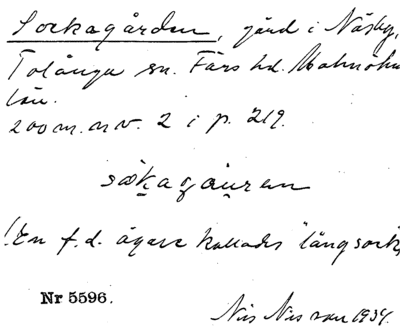 Sockagården, gård i Näsby,
Tolånga sn. Färs hd. Malmöhus
län.
200 m. n v. 2 i p. 219.
sɶḵagɑu̯ren
! En f.d. ägare kallades "långsock"
Nr 5596.
Nils Nilsson 1934.